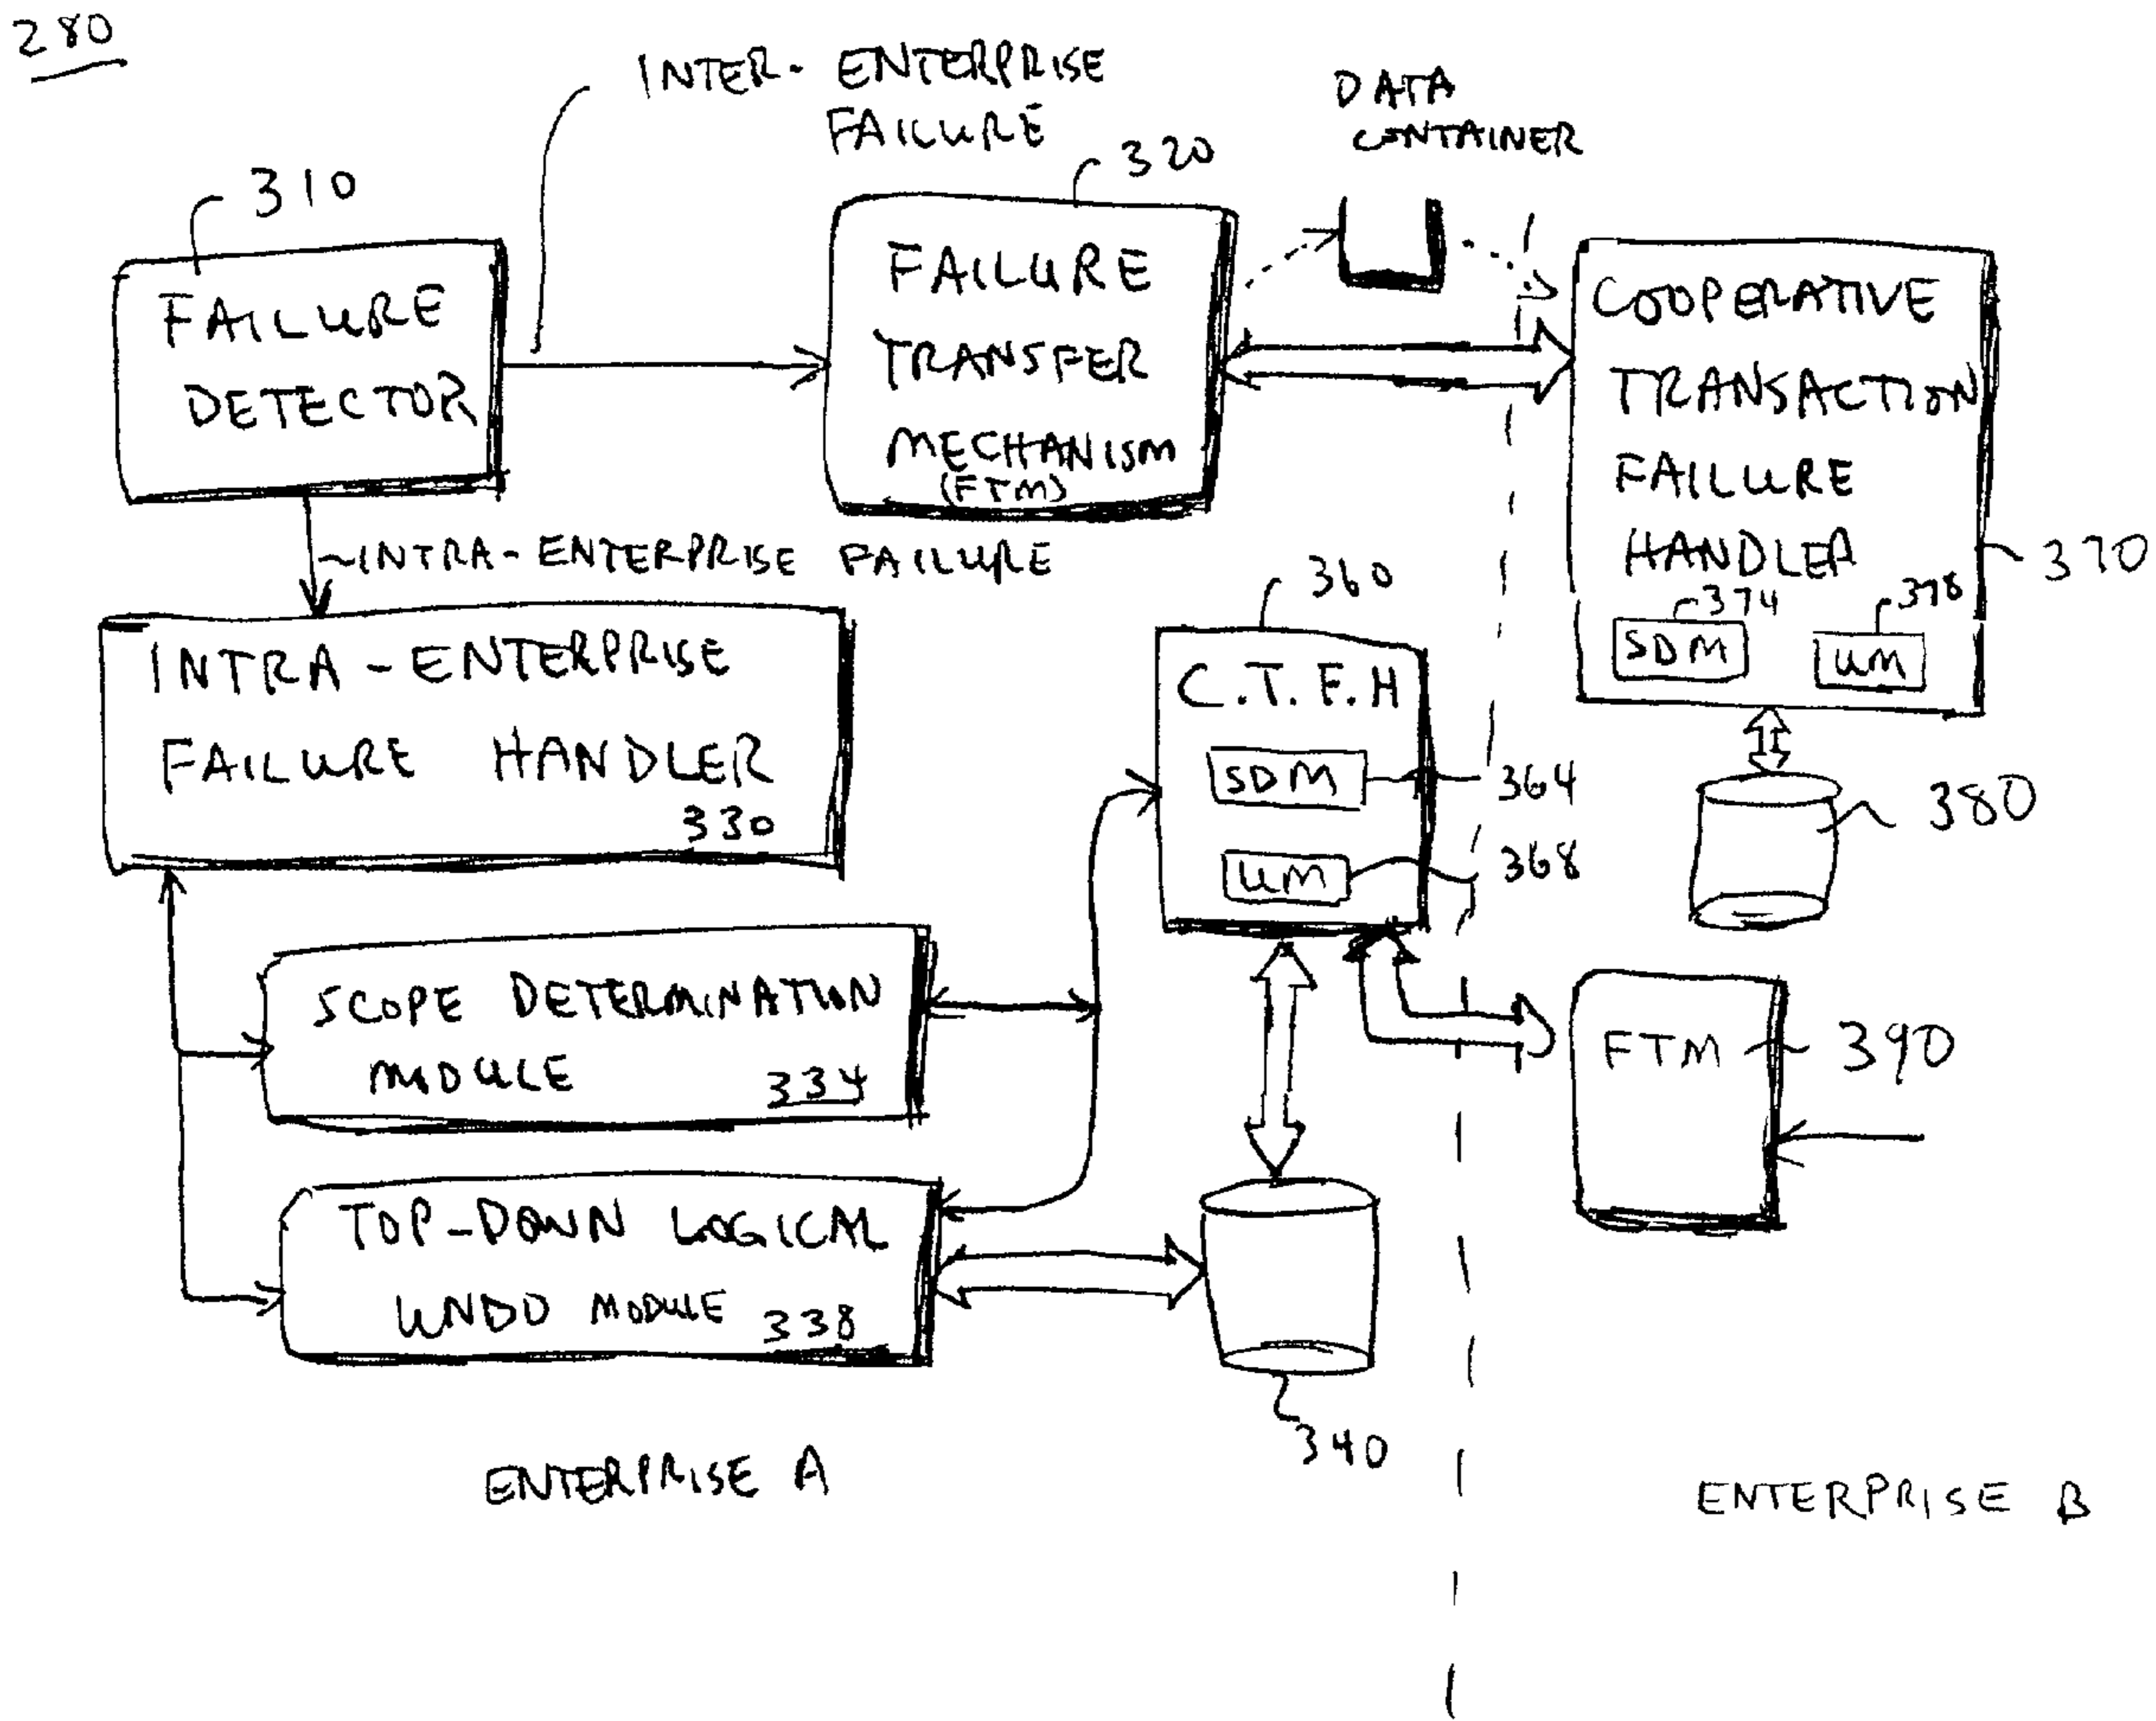 280
INTER-ENTERPRISE
FAILURE
DATA
CONTAINER
310
320
FAILURE
DETECTOR
FAILURE
TRANSFER
MECHANISM
(FTM)
COOPERATIVE
TRANSACTION
FAILURE
HANDLER
370
374
378
SDM
UM
INTRA-ENTERPRISE FAILURE
360
INTRA-ENTERPRISE
FAILURE HANDLER
330
C.T.F.H
SDM
364
UM
368
380
SCOPE DETERMINATION
MODULE 334
FTM
390
TOP-DOWN LOGICAL
UNDO MODULE 338
340
ENTERPRISE A
ENTERPRISE B